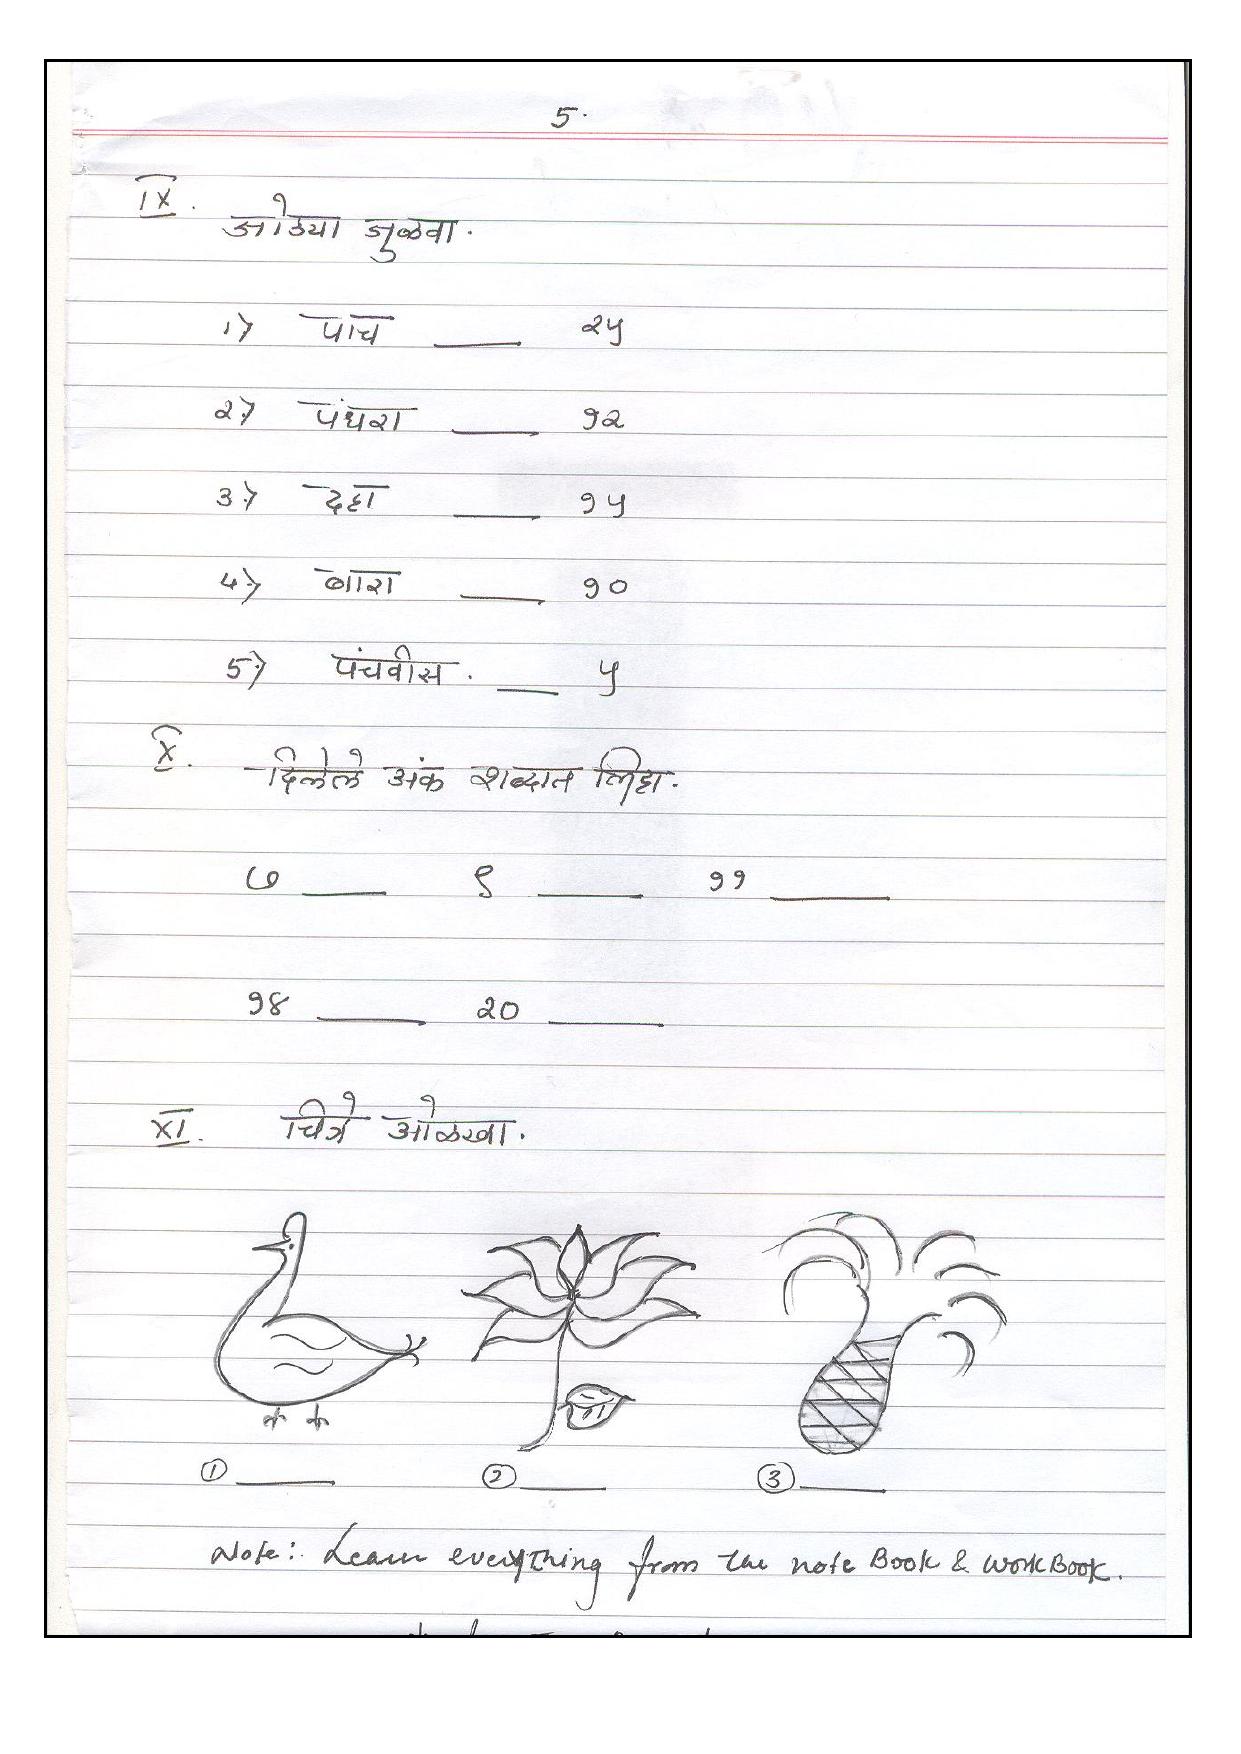 5.
IX. जोड्या जुळवा.
1) पाच ____ २५
2) पंधरा ____ १२
3) दहा ____ १५
4) बारा ____ १०
5) पंचवीस. ____ ५
X. दिलेले अंक शब्दात लिहा.
७ ____ ९ ____ ११ ____
१४ ____ २० ____
XI. चित्रे ओळखा.
① ____ ② ____ ③ ____
Note:. Learn everything from the note Book & workBook.